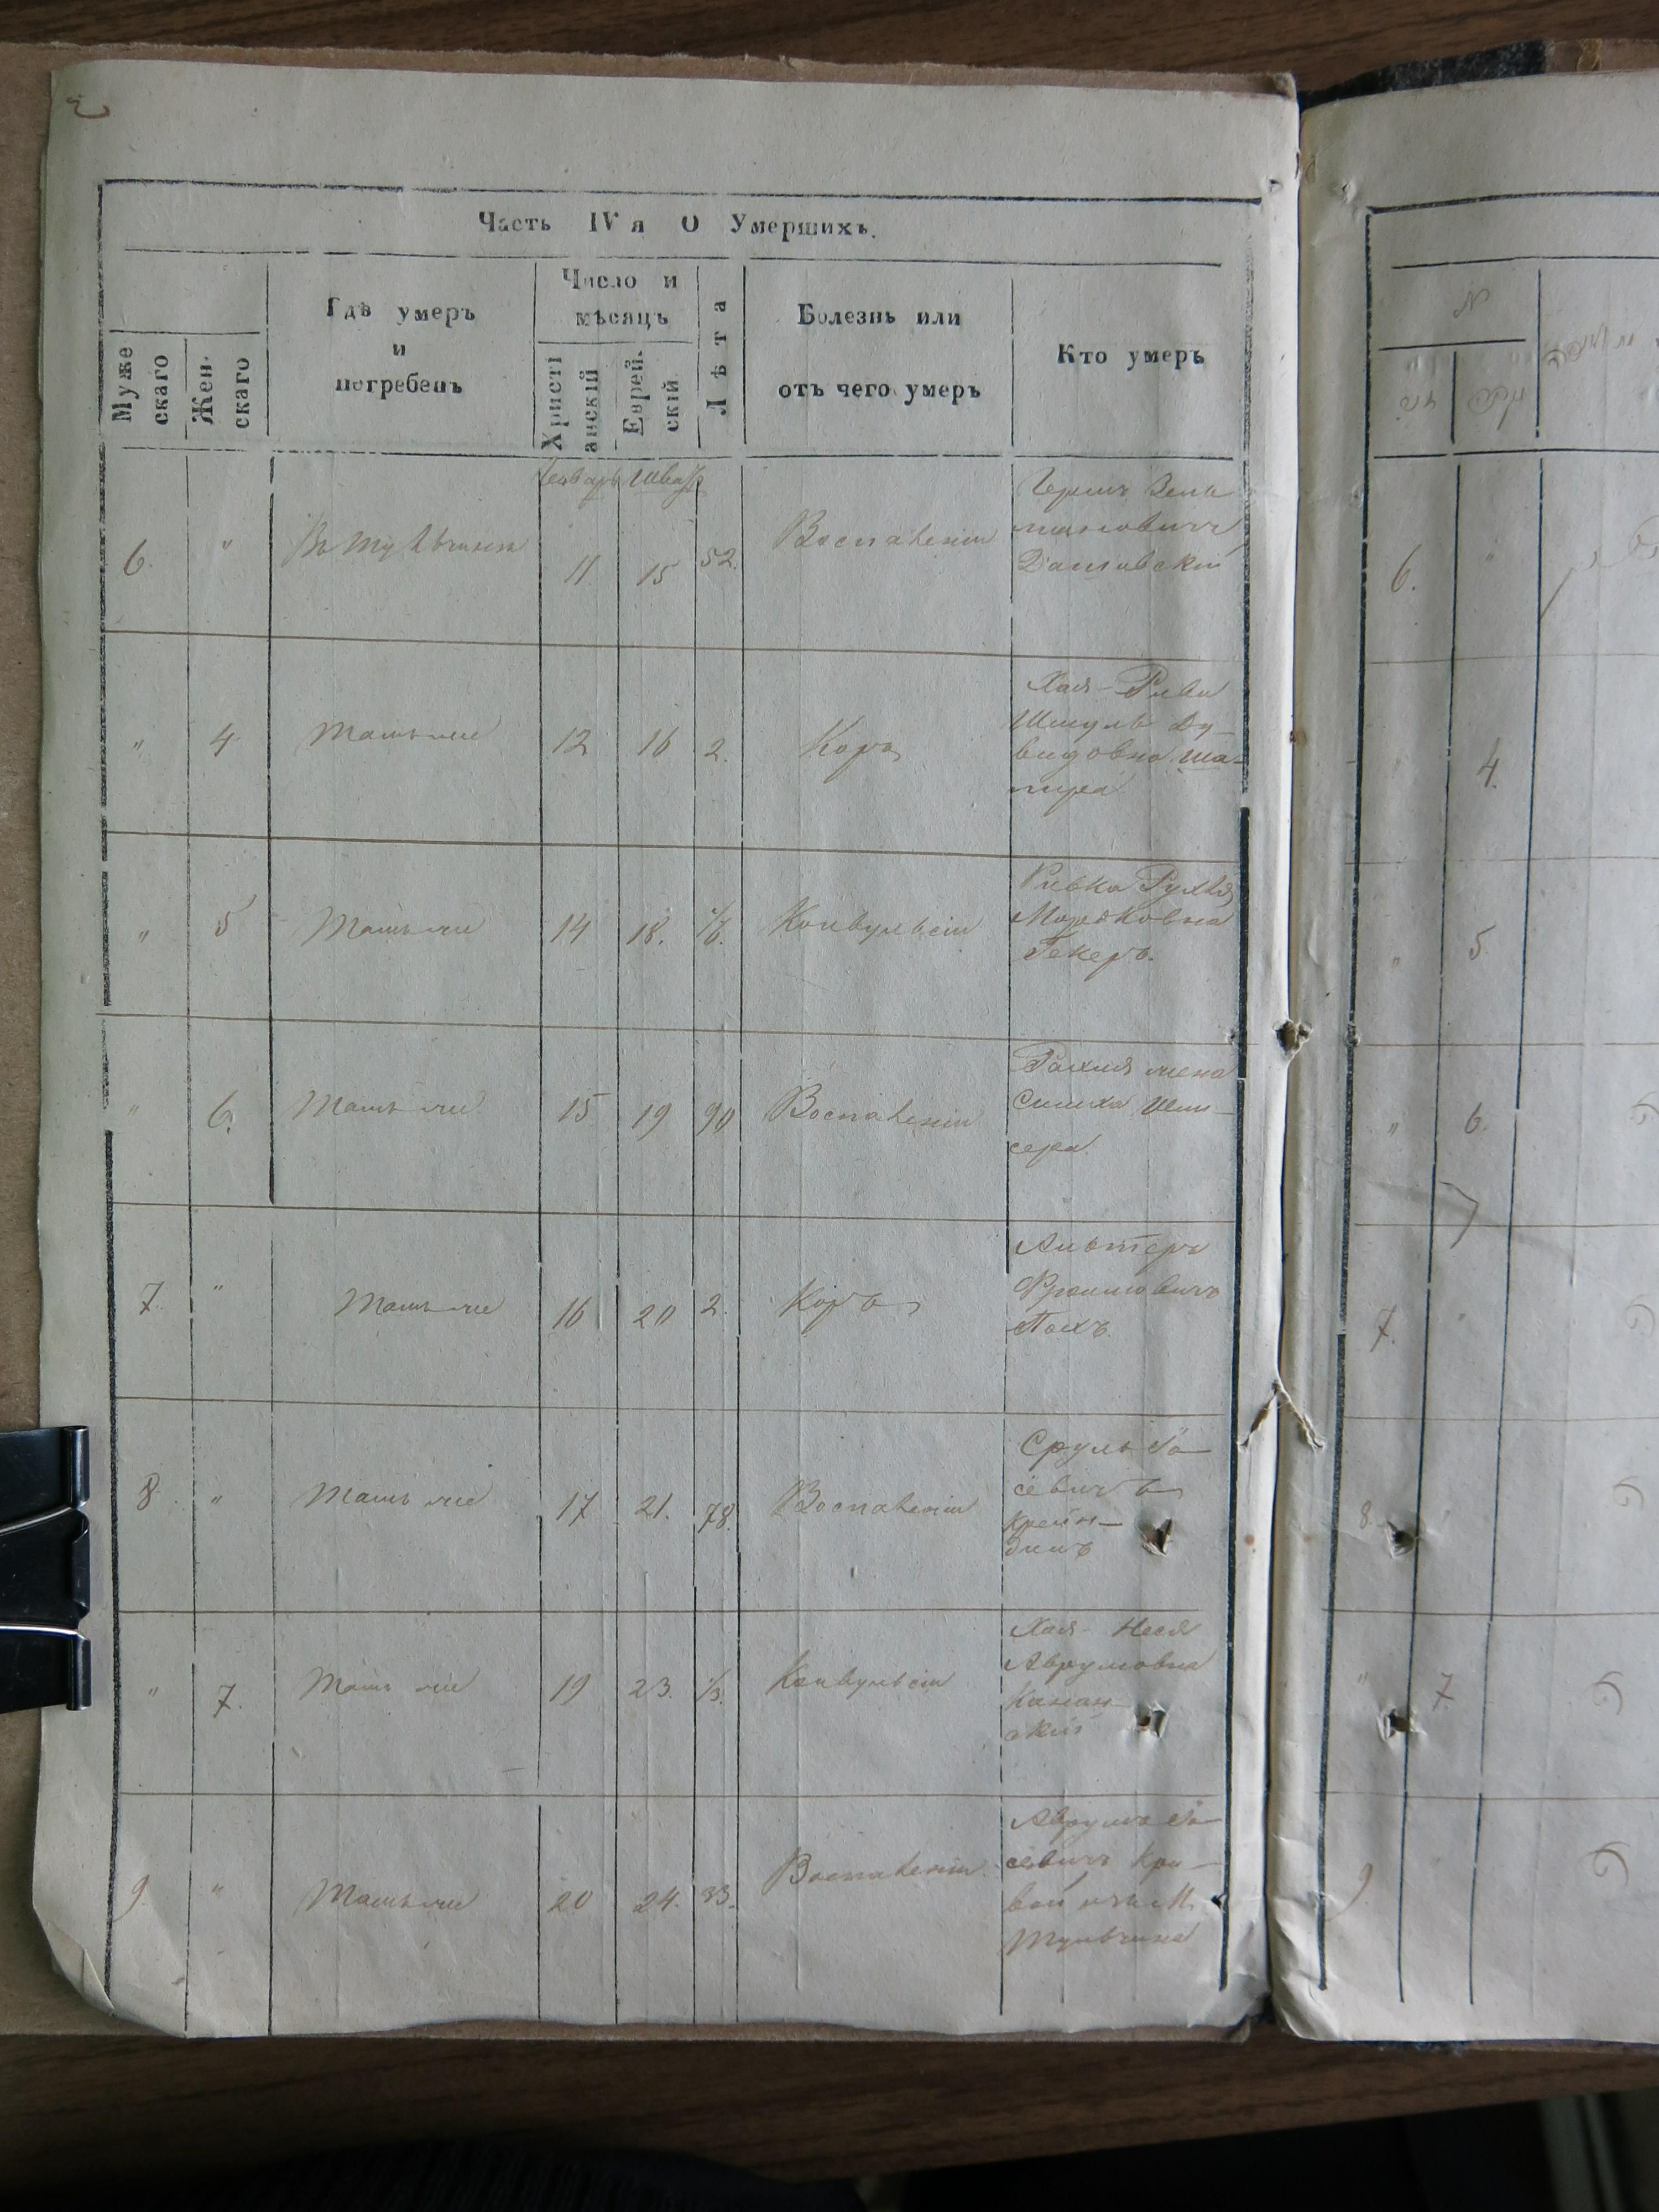 Часть IV я О Умершихъ.
Муже
скаго
Жен-
скаго
Гдѣ умеръ
и
погребенъ
Число и
мѣсяцъ
Христі
анскій
Еврей-
скій
Лѣта
Болезнь или
отъ чего умеръ
Кто умеръ
Январь Шватъ
6. " Въ Тульчинѣ 11 15 52. Воспаленіи
Гершъ Зель
мановичъ
4 Тамъ-же 12 16 2. Корь
Хая-Рива
Шмуль Ду-
видовна Ша-
пира
" 5 Тамъ-же 14 18. Конвульсіи
Ривка Рухля
Мордковна
Гекеръ.
" 6. Тамъ-же 15 19 90 Воспаленіи
Рахля жена
Симха
7. " Тамъ-же 16 20 2. Корь
Альтеръ
Фроимовичъ
8 " Тамъ же 17 21. 78. Воспаленіи
Сруль Іо-
севичъ
Крейн-
динъ
" 7. Тамъ же 19 23. 1/3. Конвульсіи
Хая-Неся
Аврумовна
Канан-
скій
9. " Тамъ-же 20 24. 33. Воспаленіи
Аврумъ Іо-
севичъ Кри-
вой изъ М.
Тульчина
6. "
4.
" 5.
" 6.
7. "
8.
" 7
9